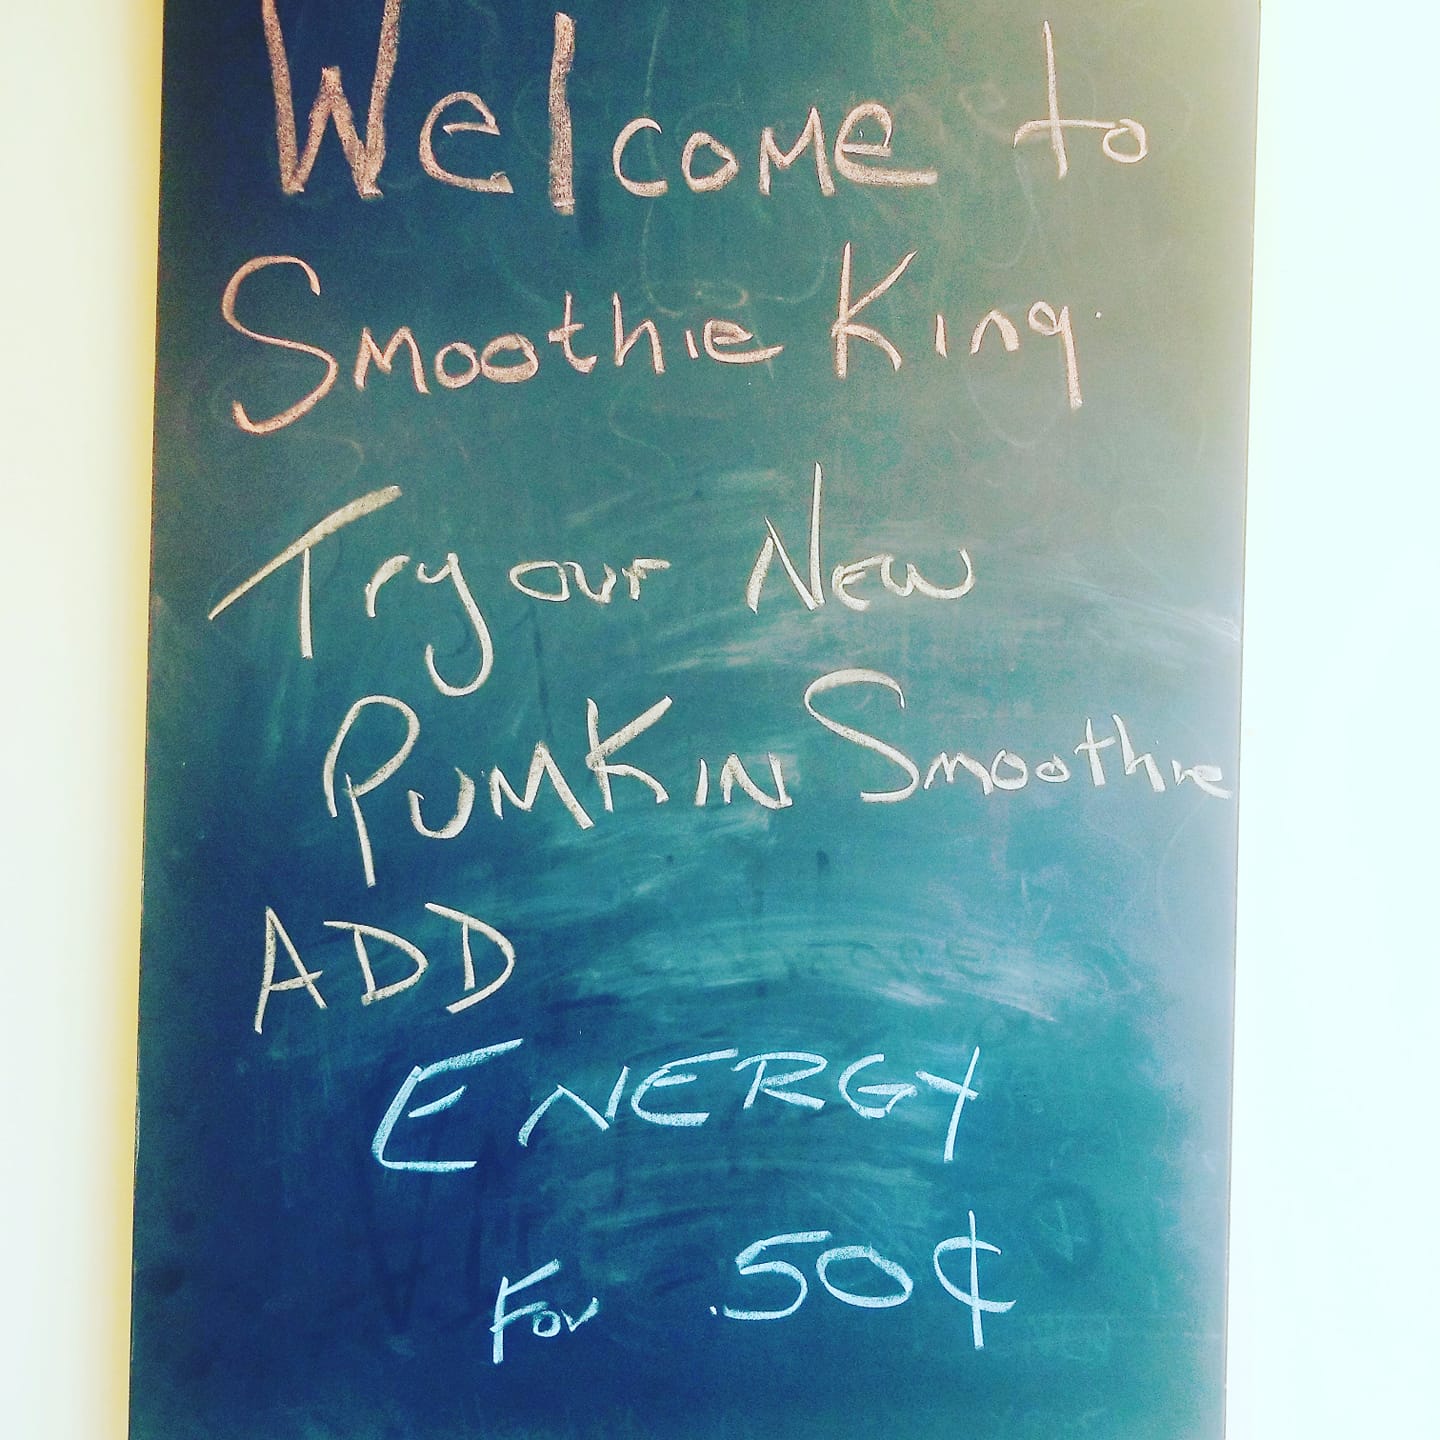 Welcome to
Smoothie King.
Try our New
Pumkin Smoothie
ADD
ENERGY
For .50¢